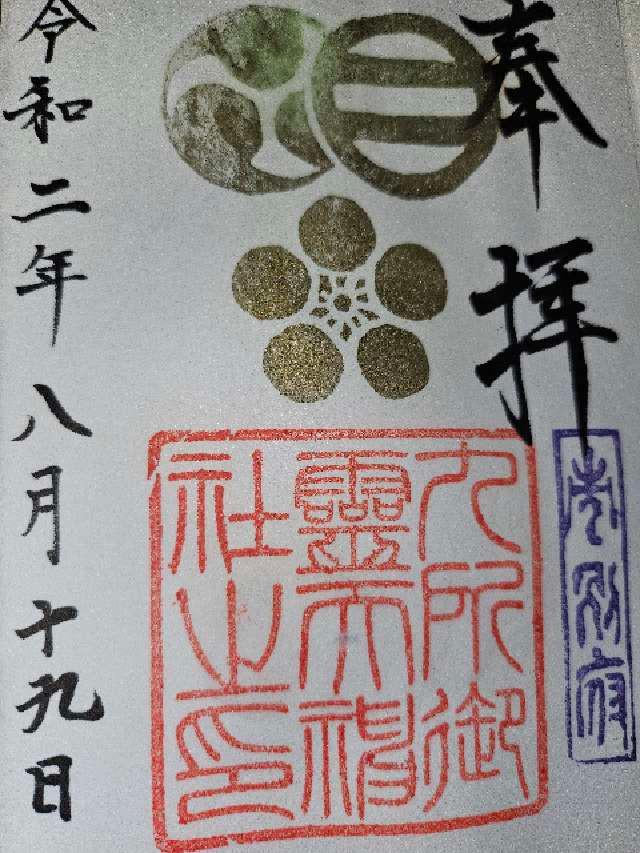 奉拝
別府
九所御
靈天神
社之印
令和二年八月十九日